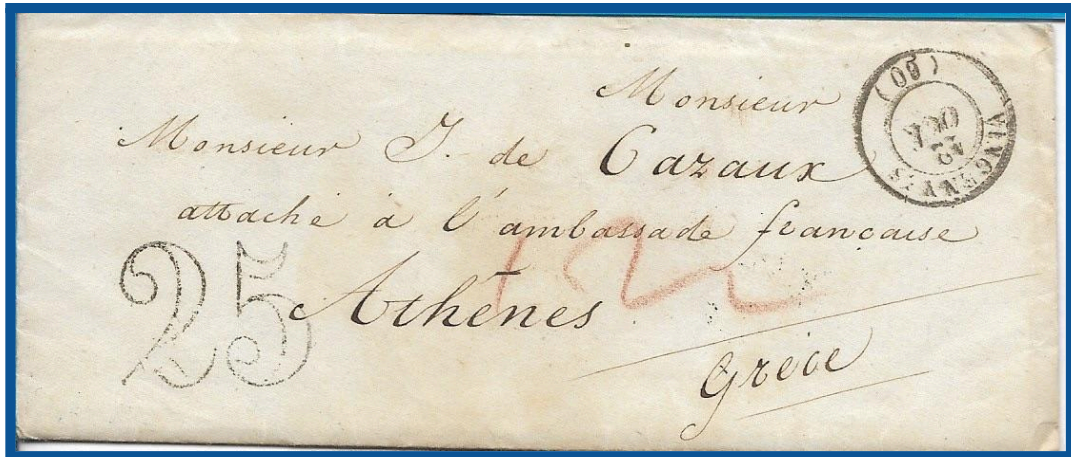 Monsieur
Monsieur J. de Cazaux
attaché à l'ambassade française
Athènes
Grèce
25
VINCENNES
(60)